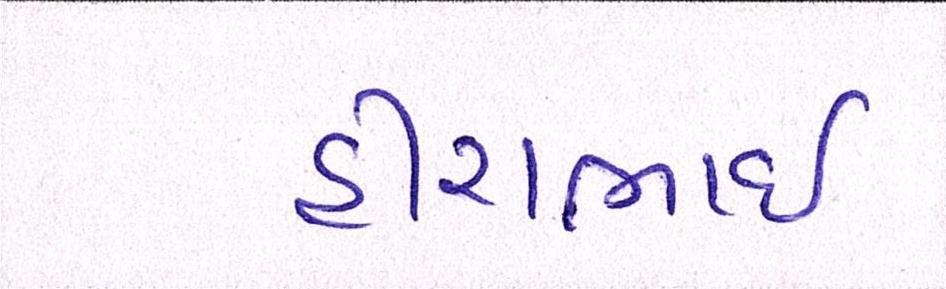 હીરાભાઈ